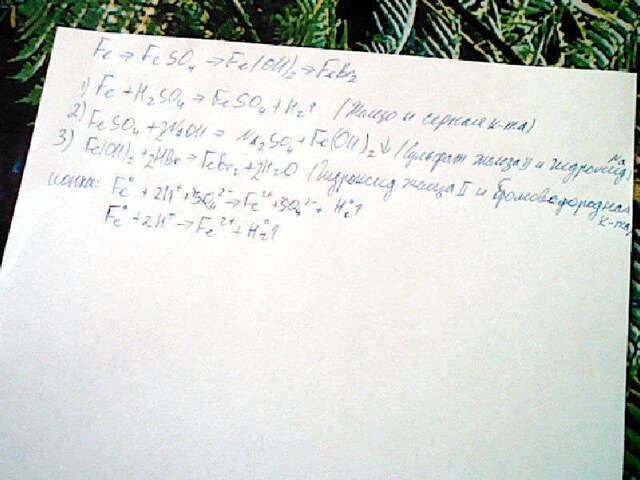 Fe → FeSO₄ → Fe(OH)₂ → FeBr₂
1) Fe + H₂SO₄ → FeSO₄ + H₂↑ (Железо и серная к-та)
2) FeSO₄ + 2NaOH → Na₂SO₄ + Fe(OH)₂↓ (Сульфат железа II и гидроксид Na)
3) Fe(OH)₂ + 2HBr → FeBr₂ + 2H₂O (Гидроксид железа II и бромоводородная к-та)
Fe⁰ + 2H⁺ + SO₄²⁻ → Fe²⁺ + SO₄²⁻ + H₂⁰↑
Fe⁰ + 2H⁺ → Fe²⁺ + H₂⁰↑